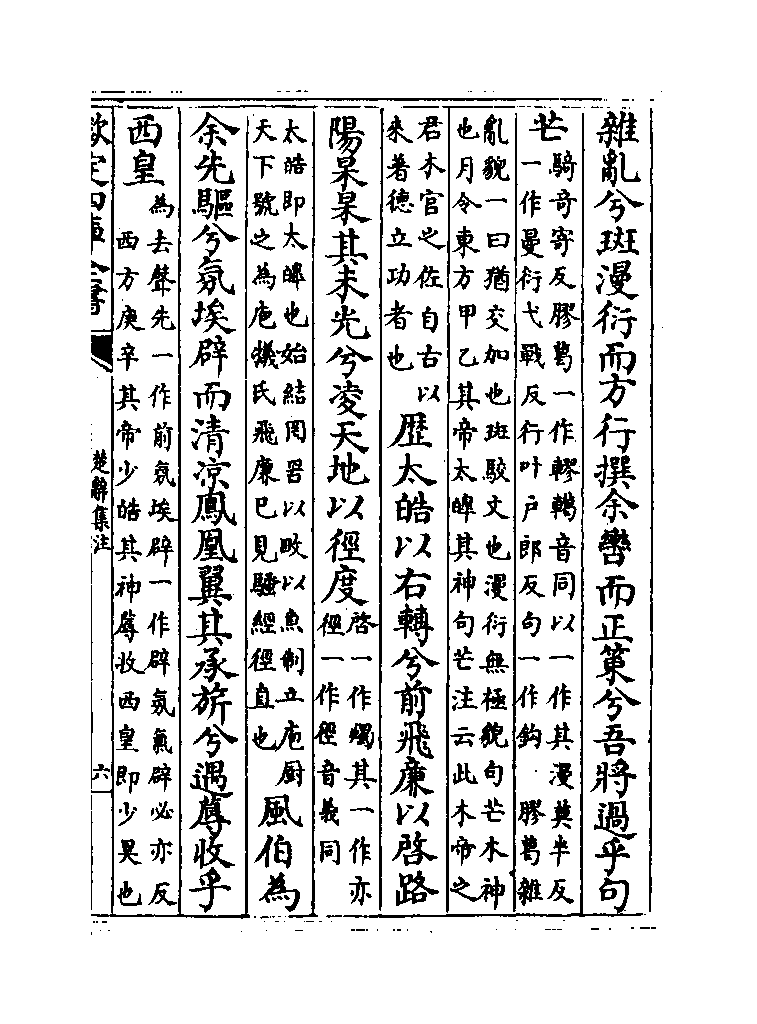 雜亂兮斑漫衍而方行撰余轡而正策兮吾將過乎句
芒
騎竒寄反膠葛一作轇轕音同以一作其漫莫半反
一作曼衍弋戰反行叶户郎反句一作鈎 膠葛雜
亂貌一曰猶交加也斑駮文也漫衍無極貌句芒木神
也月令東方甲乙其帝太皥其神句芒注云此木帝之
君木官之佐自古以
來著德立功者也
歴太皓以右轉兮前飛廉以啓路
陽杲杲其未光兮凌天地以徑度
啓一作燭其一作亦
徑一作徑音義同
太皓即太皥也始結罔罟以畋以魚制立庖厨
天下號之為庖犧氏飛廉已見騷經徑直也
風伯為
余先驅兮氛埃辟而清凉鳳凰翼其承旂兮遇蓐收乎
西皇
為去聲先一作前氛埃辟一作辟氛氣辟必亦反
西方庚辛其帝少皓其神蓐收西皇即少昊也
欽定四庫全書
楚辭集注
六